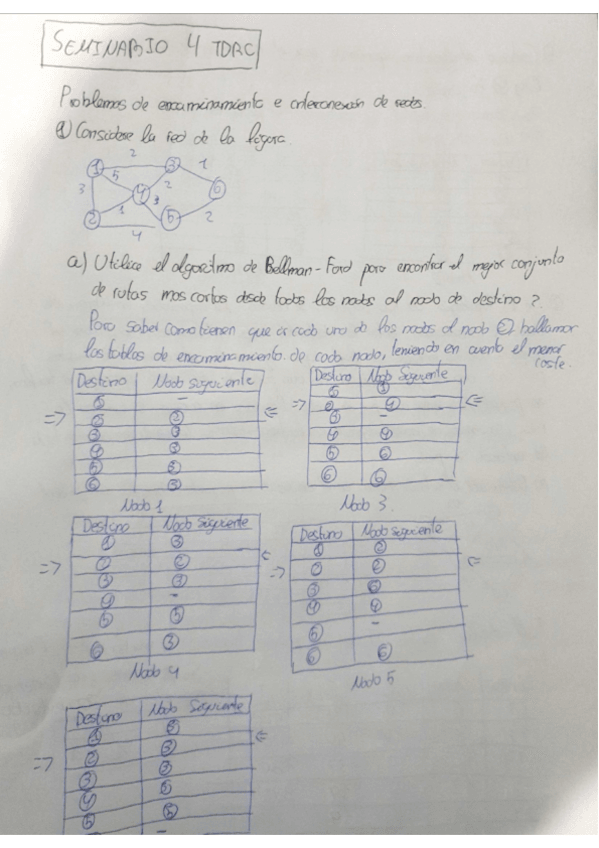 SEMINARIO 4 TDRC
Problemas de encaminamiento e interconexión de redes.
① Considere la red de la figura.
2
1 3 1
5
3 4 2 6
1 3
2 5 2
4
a) Utilice el algoritmo de Bellman-Ford para encontrar el mejor conjunto
de rutas mas cortas desde todos los nodos al nodo de destino 2.
Para saber como tienen que ir cada uno de los nodos al nodo ② hallamos
las tablas de encaminamiento de cada nodo, teniendo en cuenta el menor
coste.
Destino Nodo siguiente
-
⇒ 2 ⇐
3 3
4 3
5 3
6 3
Nodo 1
Destino Nodo Siguiente
⇒ 2 4 ⇐
3 -
4 4
5 6
6 6
Nodo 3
Destino Nodo Siguiente
1 3
⇒ 2 2 ⇐
3 3
4 -
5 5
6 3
Nodo 4
Destino Nodo siguiente
1 2
⇒ 2 2 ⇐
3 6
4 4
5 -
6 6
Nodo 5
Destino Nodo Siguiente
1 3
⇒ 2 3 ⇐
3 3
4
5 5
-